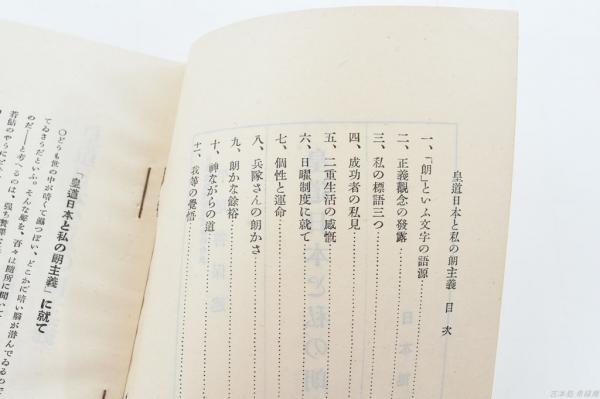 皇道日本と私の朗主義 目次
一、「朗」といふ文字の語源
二、正義觀念の發露
三、私の標語三つ
四、成功者の私見
五、二重生活の感慨
六、日曜制度に就て
七、個性と運命
八、兵隊さんの朗かさ
九、朗かな餘裕
十、神ながらの道
十一、我等の覺悟
「皇道日本と私の朗主義」に就て
〇どうも世の中が暗くて濕つぽい、どこかに暗い脳が潜んでゐるので
てゐさうだといふ。そんな聲を、吾々は隨所に聞いて
のだ――と考へるのは、强ち贅澤
若鮎のやうにピ